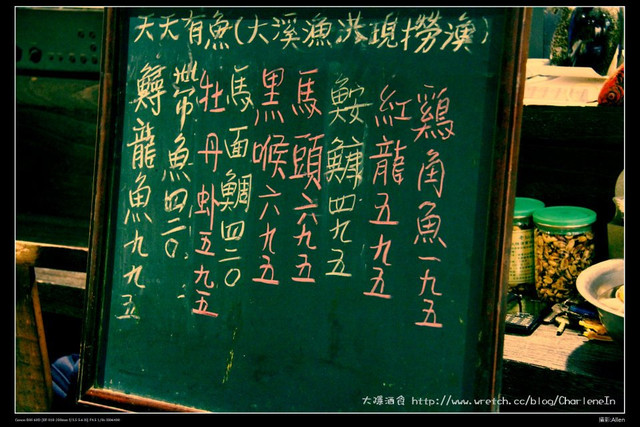 天天有魚(大溪漁港現撈漁)
鷄角魚一九五
紅龍五九五
鮟鱇四九五
馬頭六九五
黑喉六九五
馬面鯛四二〇
牡丹蝦五九五
帶魚四二〇
鱘龍魚九九五
大嗓酒食 http://www.wretch.cc/blog/CharleneIn
攝影:Allen